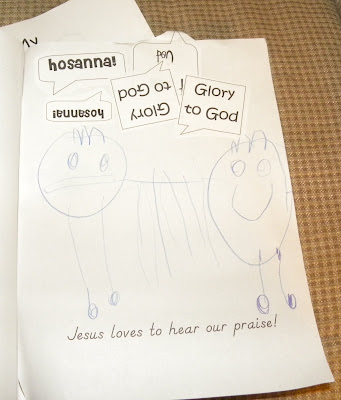 hosanna!
hosanna!
Glory
to God
Glory
to God
Jesus loves to hear our praise!